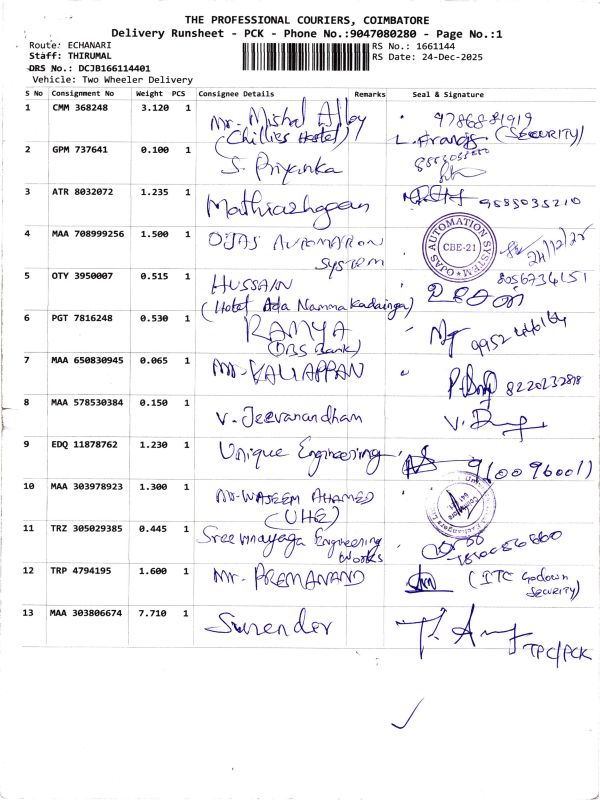 THE PROFESSIONAL COURIERS, COIMBATORE
Delivery Runsheet - PCK - Phone No.:9047080280 - Page No.:1
Route: ECHANARI RS No.: 1661144
Staff: THIRUMAL RS Date: 24-Dec-2025
DRS No.: DCJB166114401
Vehicle: Two Wheeler Delivery
S No Consignment No Weight PCS Consignee Details Remarks Seal & Signature
1 CMM 368248 3.120 1 Mr. Mishal
(Chillies Hotel) L. Francis (SECURITY)
2 GPM 737641 0.100 1 S. Priyanka
3 ATR 8032072 1.235 1 Mathiazhagan 9585035210
4 MAA 708999256 1.500 1 OJAS AUTOMATION
SYSTEM
OJAS AUTOMATION SYSTEM CBE-21
24/12/25
8056734151
5 OTY 3950007 0.515 1 HUSSAIN
(Hotel Ada Namma Kadainga)
6 PGT 7816248 0.530 1 RAMYA
(DBS Bank)
7 MAA 650830945 0.065 1 Mr. KALIAPPAN 8220232818
8 MAA 578530384 0.150 1 V. Jeevanandham
9 EDQ 11878762 1.230 1 Unique Engineering 9100960011
10 MAA 303978923 1.300 1 Mr. WASEEM AHAMED
(UHE)
11 TRZ 305029385 0.445 1 Sree Vinayaga Engineering
Works
12 TRP 4794195 1.600 1 Mr. PREMANAND (ITC Godown
SECURITY)
13 MAA 303806674 7.710 1 Surender
TPC/PCK